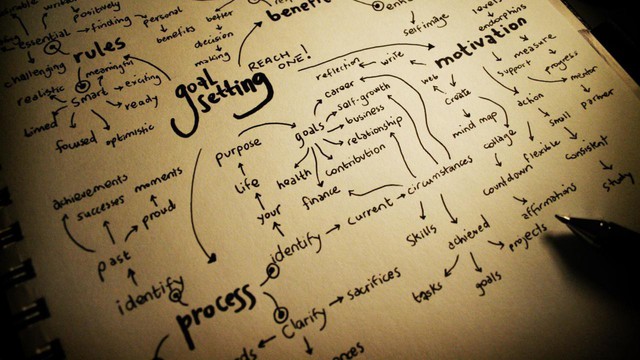 positively
finding
personal
benefits
better
decision
making
benefit
self image
levels
endorphins
essential
rules
challenging
realistic
meaningful
smart
exciting
ready
timed
focused
optimistic
goal
setting
REACH
ONE!
reflection
write
motivation
measure
progress
mentor
support
partner
career
self-growth
business
relationship
contribution
goals
health
finance
web
create
mind map
action
small
collage
flexible
consistent
study
countdown
affirmations
purpose
life
your
identify
current
circumstances
skills
achieved
projects
tasks
goals
achievements
successes
moments
proud
past
identify
process
clarify
sacrifices